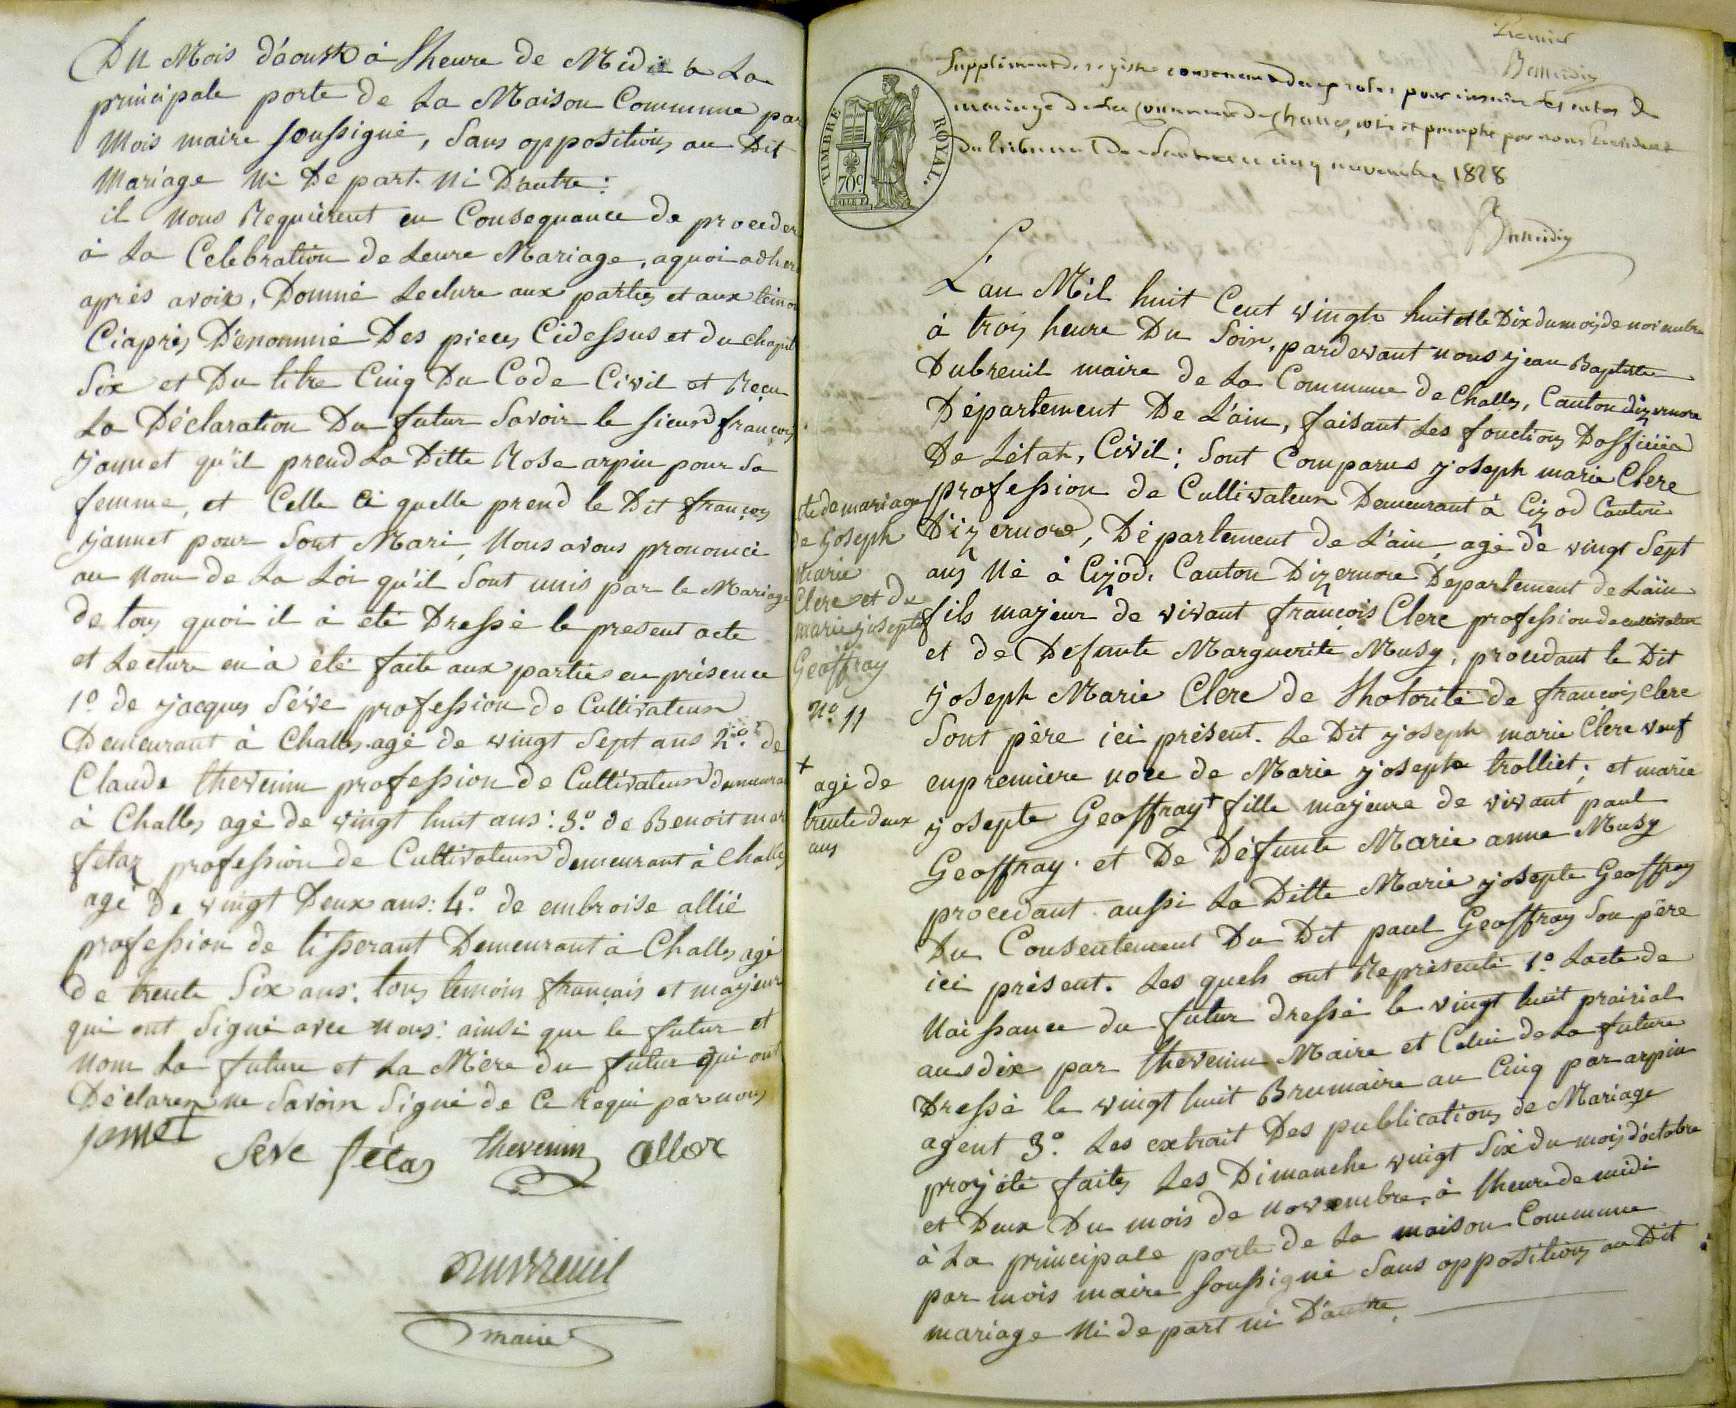 Du Mois d'aoust à lheure de Midi à La
principale porte de La Maison Commune par
Mois maire soussigné, Sans oppositions au Dit
Mariage Ni De part Ni Dautre:
il Nous Requièrent en Consequance de proceder
à La Celebration de Leure Mariage, aquoi adheré
après avoir, Donné Lecture aux parties et aux témoi
Ciaprès Dénommé Des pieces Cidessus et du chapit
Six et Du titre Cinq Du Code Civil et Reçu
La Déclaration Du futur Savoir le sieur françois
yannet qu'il prend La Ditte Rose arpin pour Sa
femme, et Celle Ci quelle prend le Dit françois
yannet pour Sont Mari, Nous avons prononcé
au Nom de La Loi qu'il Sont unis par le Mariage
de tous quoi il à été Dressé le present acte
et Lecture en à été faite aux parties en présence
1º de yacques Séve profession de Cultivateur
Demeurant à Challes agé de vingt Sept ans 2º de
Claude thevenin profession de Cultivateur demeurant
à Challes agé de vingt huit ans: 3º de Benoit mar
fétaz profession de Cultivateur demeurant à Challes
agé De vingt Deux ans: 4º de embroise allié
profession de tisserant Demeurant à Challes agé
de trente Six ans: tous temoins français et majeurs
qui ont Signé avec Nous: ainsi que le futur et
Nom La future et La Mère du futur qui ont
Déclaren ne Savoir Signé de Ce Requi par nous
janet
Seve fétas thevenin allex
Dubreuil
maire
Premier
TIMBRE ROYAL.
70c
Supplément de registre
mariage de la Commune de Challes, coté et paraphé par nous President
du tribunal De Nantua ce cinq novembre 1828
L'an Mil huit Cent vingt huit et le Dix du mois de novembre
à trois heure Du Soir, pardevant nous yean Baptiste
Dubreuil maire de La Commune de Challes, Canton dizernore
Département De L'ain, faisant Les fonctions Dofficier
De L'état, Civil: Sont Comparus yoseph marie Clere
profession de Cultivateur Demeurant à Cizod Canton
D'izernore, Département de L'ain, agé de vingt Sept
ans Né à Cizod, Canton Dizernore Département de Lain
fils majeur de vivant françois Clere profession de cultivateur
et de Defunte Marguerite Musy, procedant le Dit
yoseph Marie Clere de Lhotorité de françois Clere
Sont père ici présent. Le Dit yoseph marie Clere veuf
enpremière noce de Marie yosepte trolliet; et marie
yosepte Geoffray + fille majeure de vivant paul
Geoffray et De Défunte Marie anne Musy
procedant aussi La Ditte Marie yosepte Geoffray
Du Consentement Du Dit paul Geoffray Son père
ici présent. Les quels ont Représenté 1º Lacte de
Naissance du futur dressé le vingt huit prairial
ans dix par thevenin Maire et Celui de La future
Dressé le vingt huit Brumaire an Cinq par arpin
agent 3º Les extrait Des publications de Mariage
proyété faites Les Dimanche vingt Six du mois d'octobre
et Deux Du mois de novembre, à lheure de midi
à La principale porte de La maison Commune
par mois maire soussigné Sans oppositions au Dit
mariage Ni de part ni D'autre.
cte de mariage
de yoseph
Marie
Clere et de
marie yosepte
Geoffray
Nº 11
+
agé de
trente deux
ans